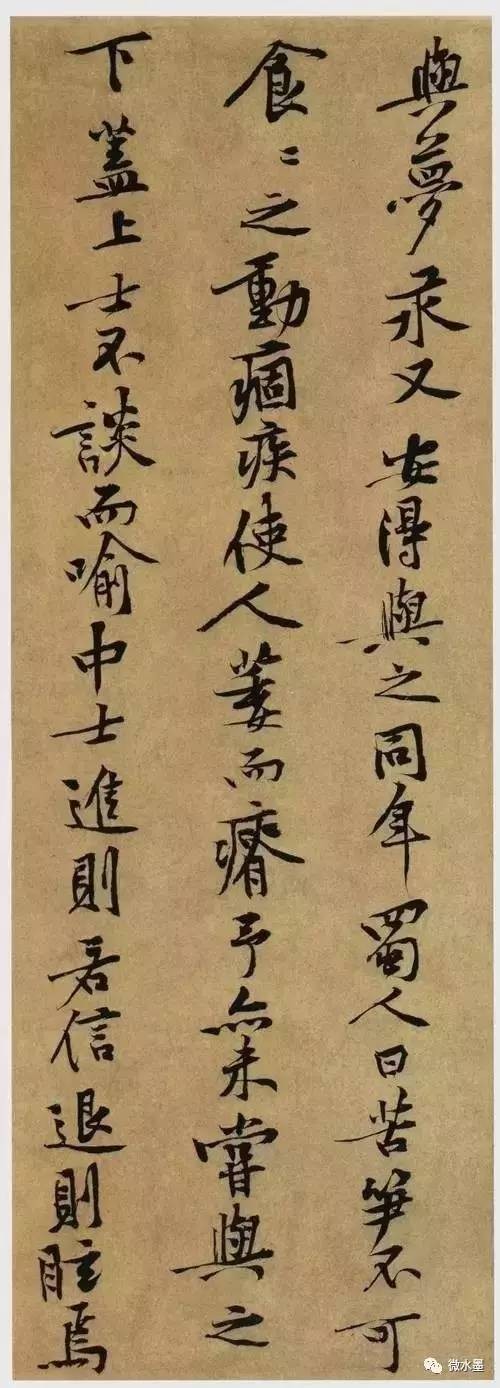 與夢汞又安得與之同年蜀人曰苦笋不可
食〻之動痼疾使人萎而瘠予亦未嘗與之
下蓋上士不談而喻中士進則若信退則眩焉
微水墨